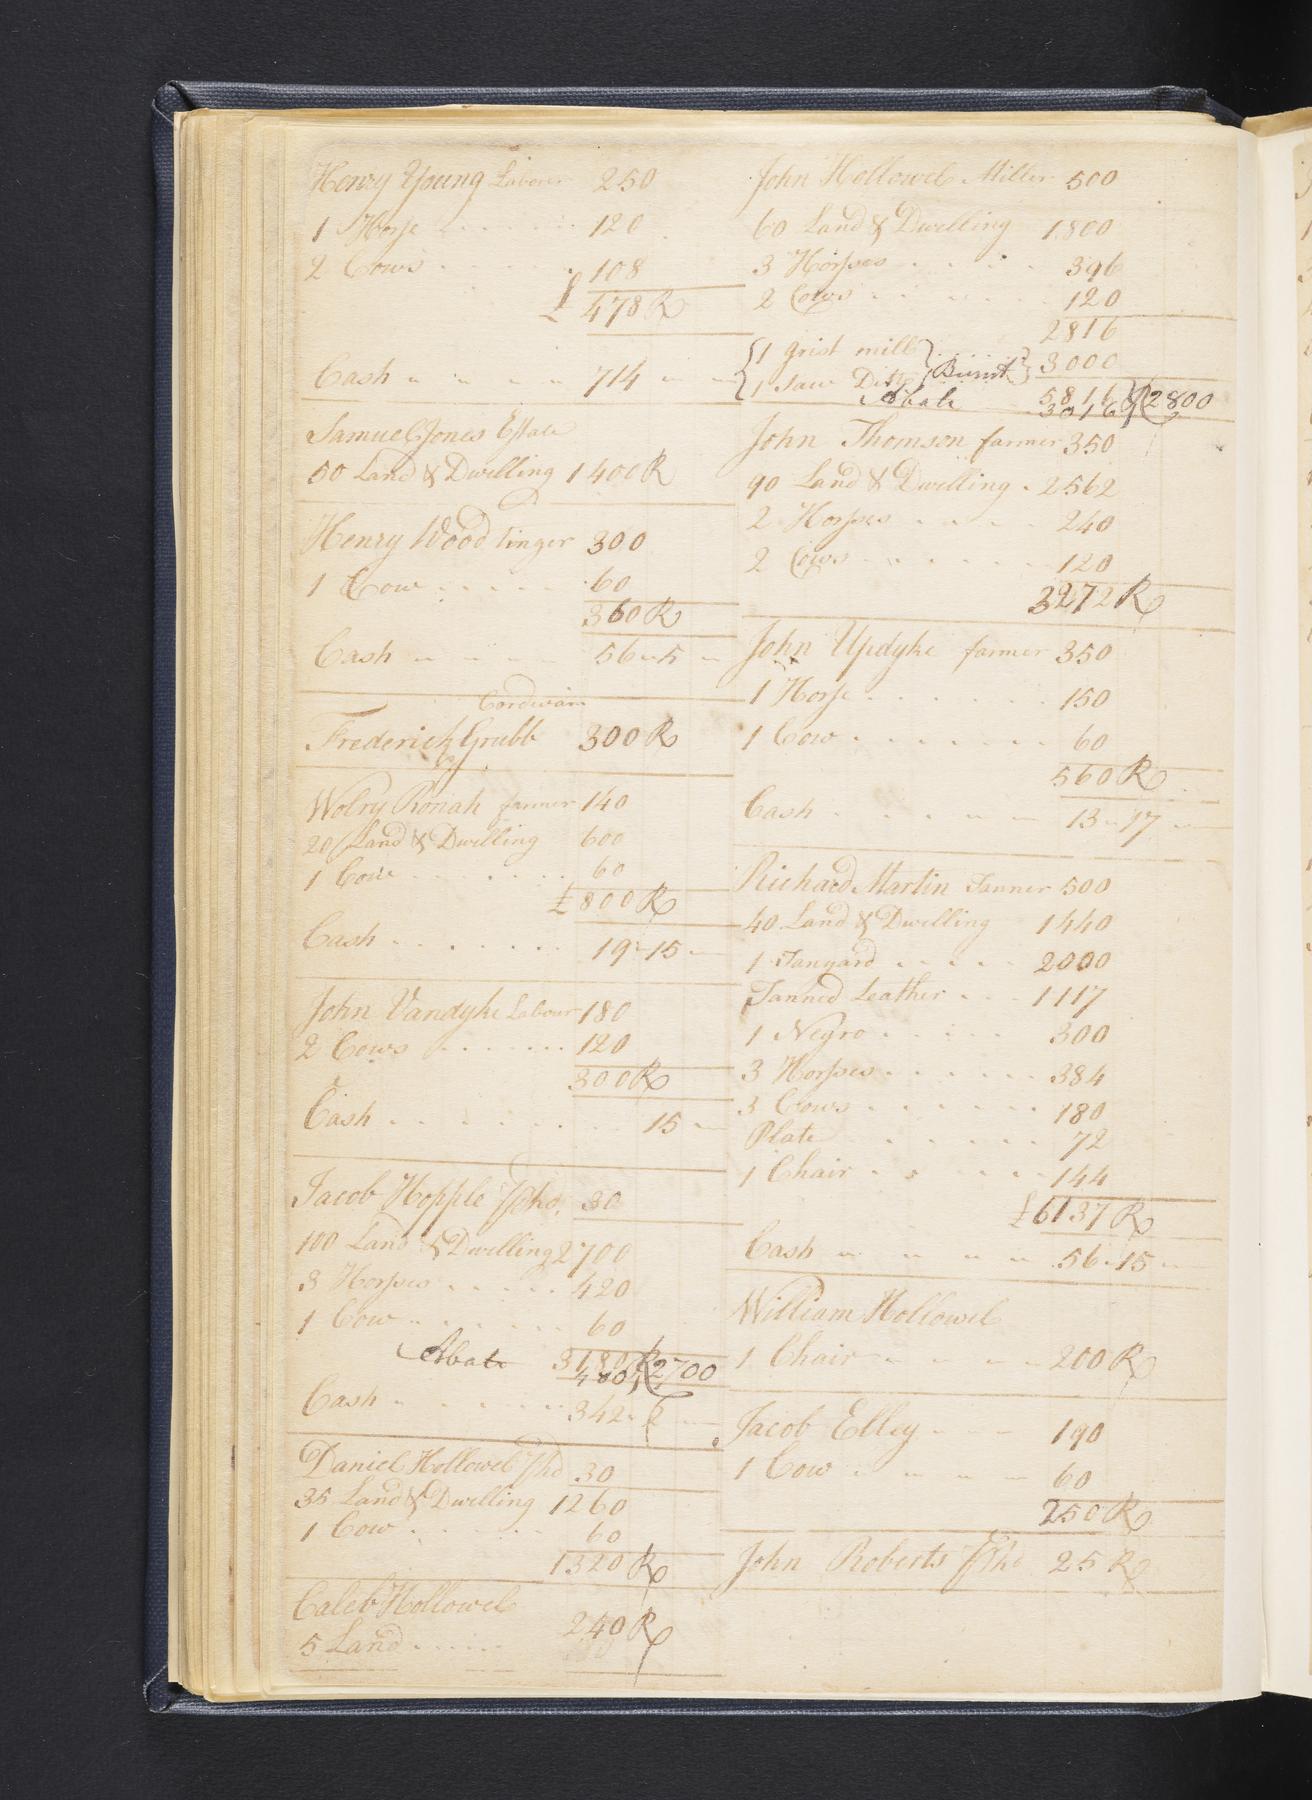 Henry Young Laborer 250
1 Horse 120
2 Cows 108
£ 478 R
Cash 714
Samuel Jones Estate
50 Land & Dwelling 1400 R
Henry Wood Tinger 300
1 Cow 60
360 R
Cash 56 - 5
Cordwain
Frederick Grubb 300 R
Wolry Roriah farmer 140
20 Land & Dwelling 600
1 Cow 60
£ 800 R
Cash 19 - 15
John Vandyke Labour 180
2 Cows 120
300 R
Cash 15
Jacob Hopple 30
100 Land & Dwelling 2700
3 Horses 420
1 Cow 60
Abate 3180 R 2700
480
Cash 342 - 6
Daniel Hollowel 30
35 Land & Dwelling 1260
1 Cow 60
1320 R
Caleb Hollowel
5 Land 240 R
John Hollowel Miller 500
60 Land & Dwelling 1800
3 Horses 396
2 Cows 120
2816
1 grist mill 3000
1 Saw Ditto Burnt
5816 R 2800
Abate 3016
John Thomson farmer 350
90 Land & Dwelling 2562
2 Horses 240
2 Cows 120
3272 R
John Updyke farmer 350
1 Horse 150
1 Cow 60
560 R
Cash 13 - 17
Richard Martin Tanner 500
40 Land & Dwelling 1440
1 Tanyard 2000
Tanned Leather 1117
1 Negro 300
3 Horses 384
3 Cows 180
Plate 72
1 Chair 144
£ 6137 R
Cash 56 - 15
William Hollowel
1 Chair 200 R
Jacob Elley 190
1 Cow 60
250 R
John Roberts 25 R